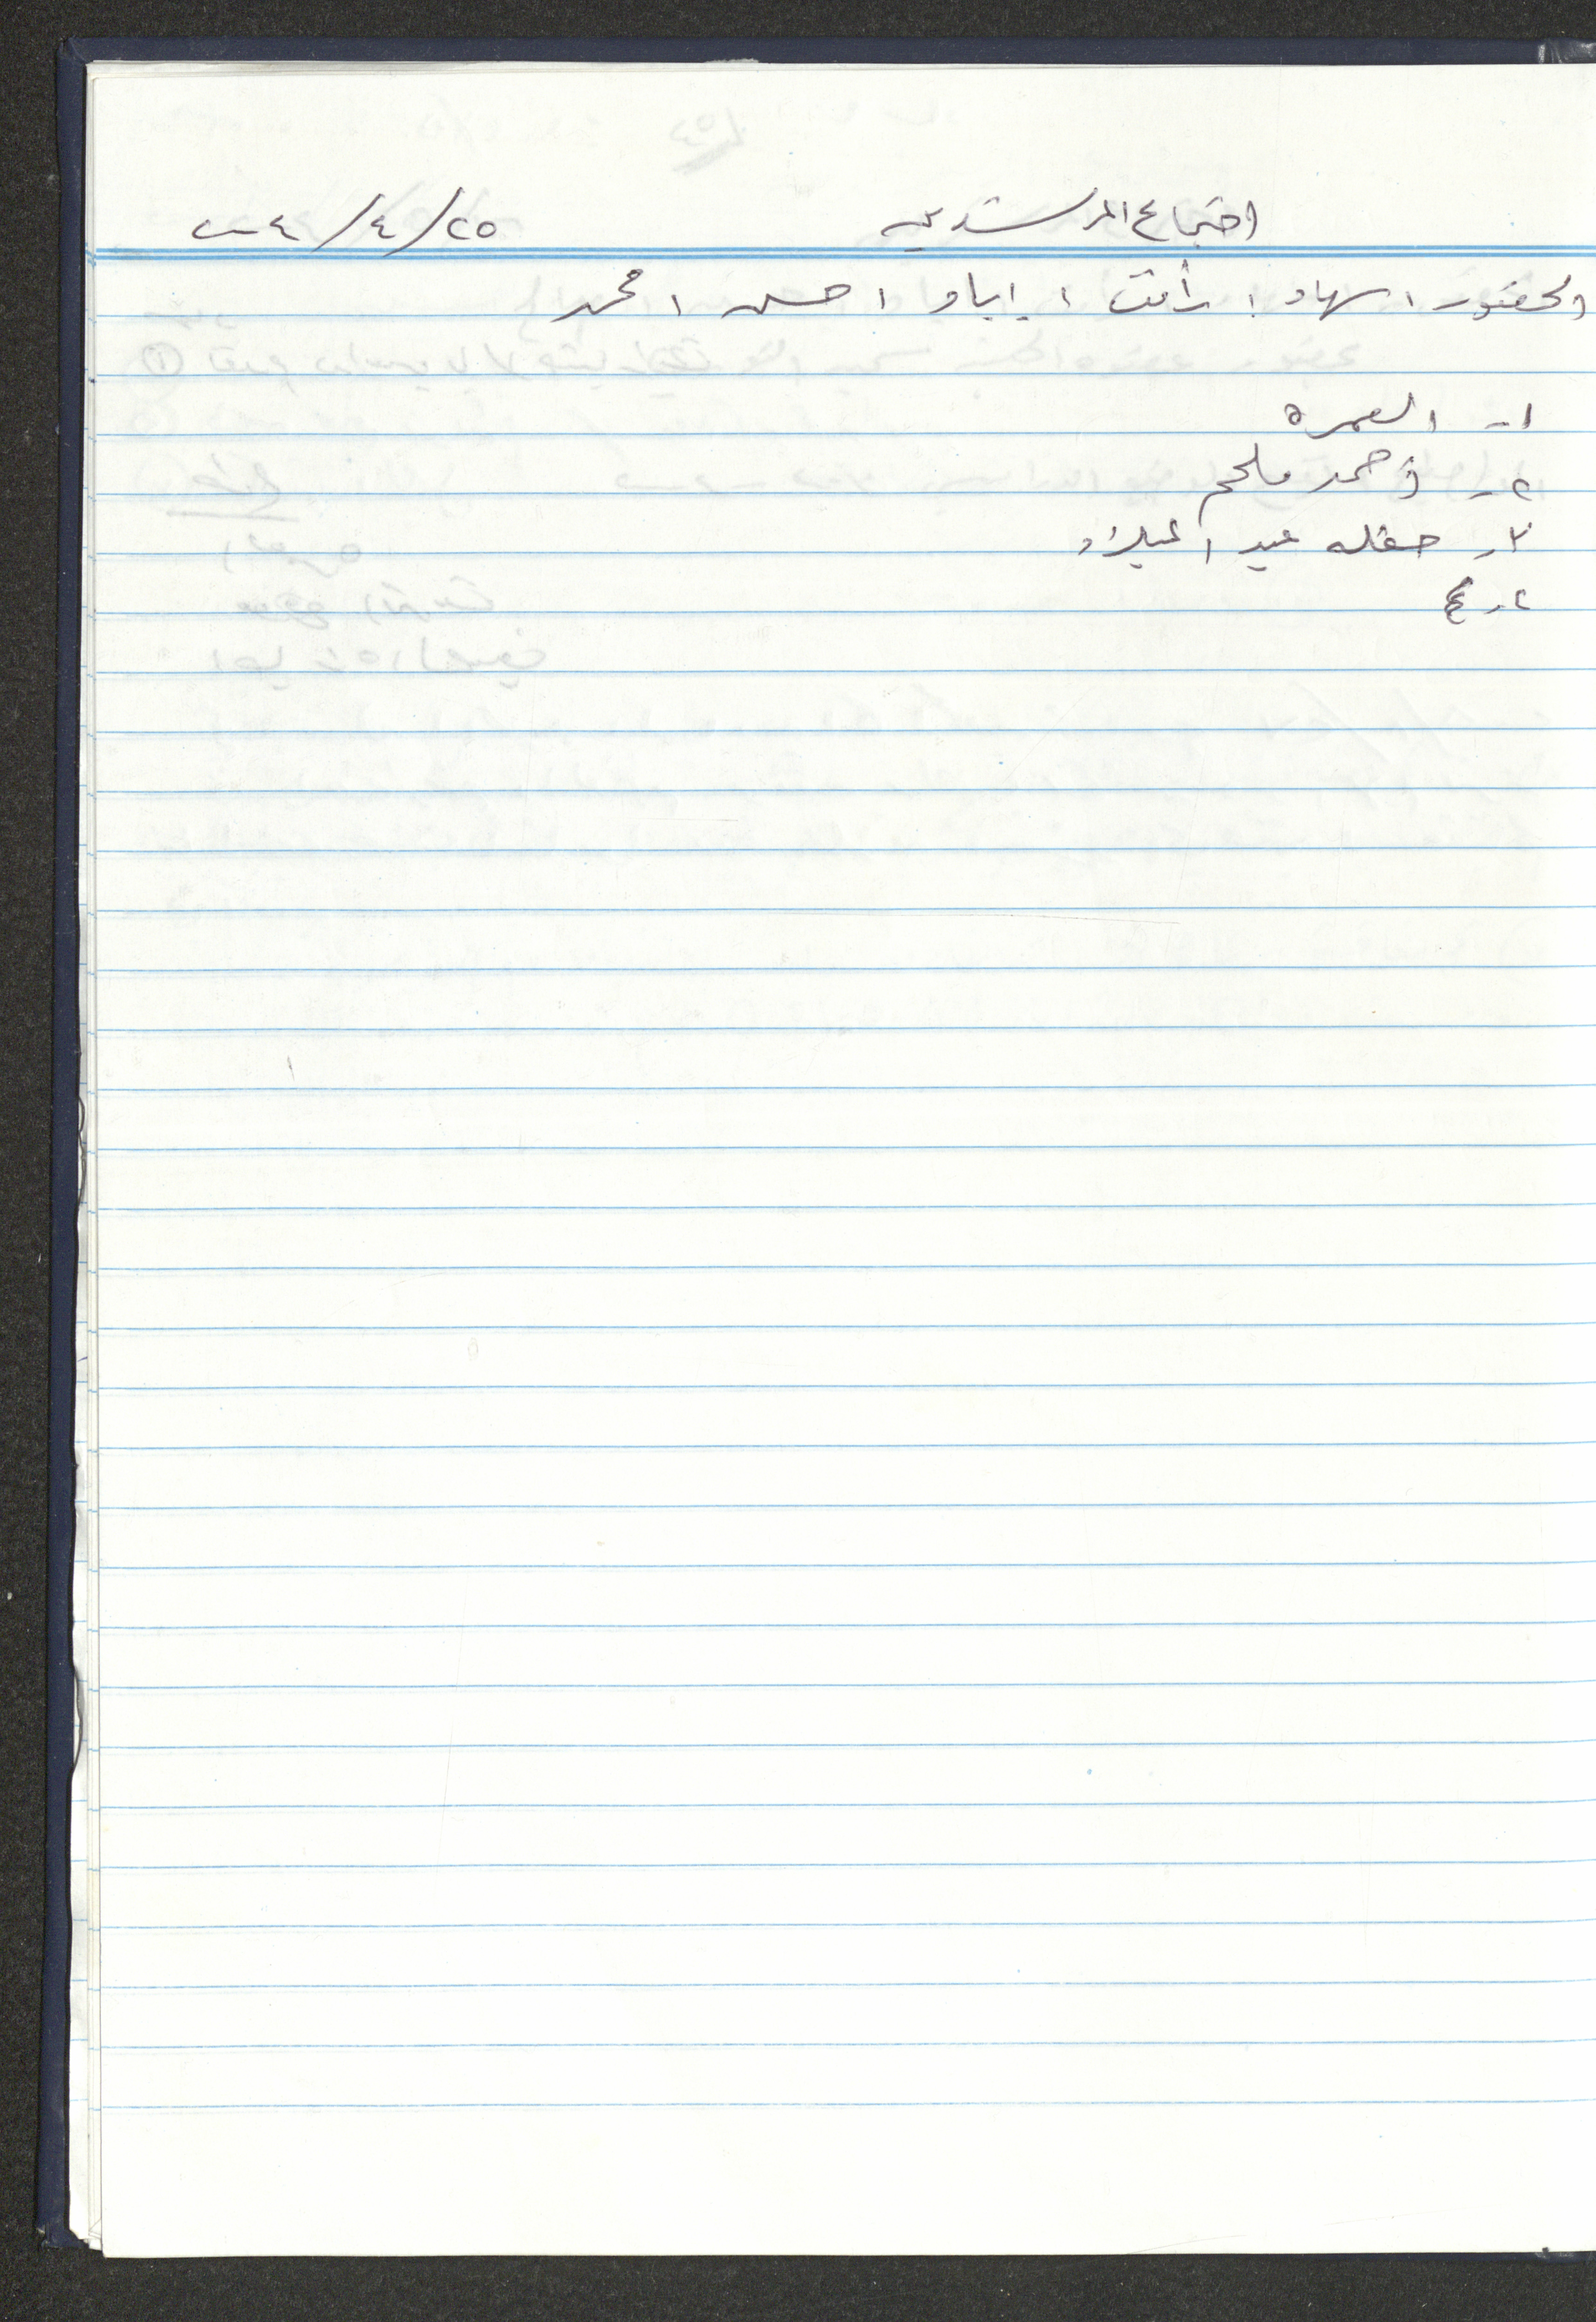 اجتماع المرشدين ٢٥/٤/٢٠٠٤
الحضور ، سهاد ، رأفت ، إياد ، حسن ، محمد
١- العمرة
٢- أحمد ملحم
٣- حفله عيد الميلاد
٤-